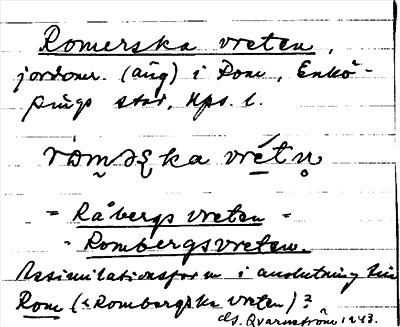 Romerska vreten,
jordomr. (äng) i Rom, Enkö-
pings stad, Ups. l.
= Råbergs vreten =
= Rombergsvreten.
Assimilationsform i anslutning till
Rom (< Rombergska vreten)?
G. Qvarnström 1943.